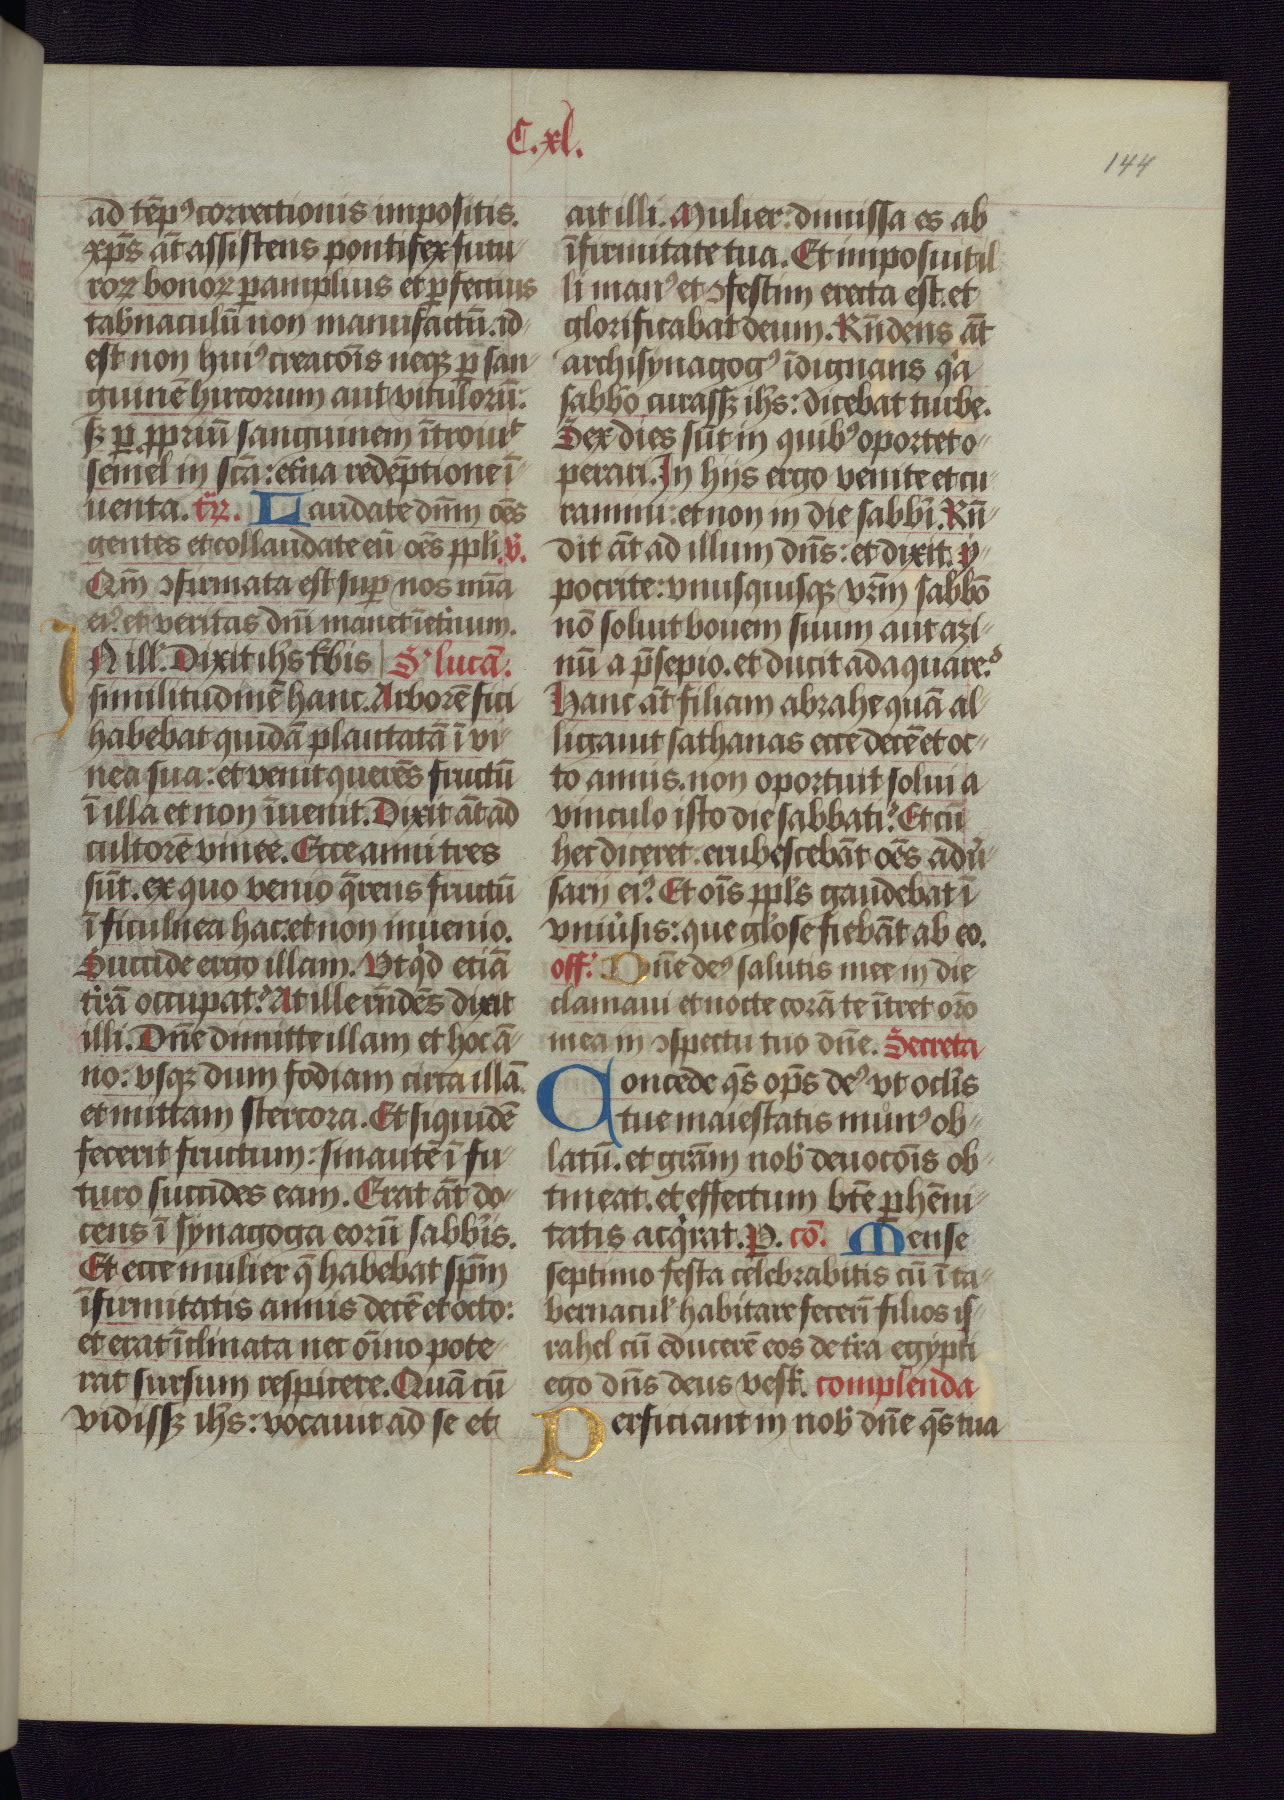 C.xl.
144
ad tēpꝰ correctionis impositis.
xp̄s āt assistens pontifex futu-
roꝝ bonoꝝ ꝑ amplius et ꝑfectius
tab̄naculū non manufactū. id-
est non huiꝰ creacōis neqꝫ ꝑ san-
guinē hircorum aut vitulorū:
sꝫ ꝑ ꝓpriū sanguinem ītrouit
semel in scā: et̄na redēptione ī-
uenta. tr̄. Laudate dn̄m oēs
gentes et collaudate eū oēs ppl̄i. v̄.
Qm̄ ꝯfirmata est suꝑ nos mīa
eiꝰ. et veritas dn̄i manet ī et̄num.
IN ill'. Dixit ih̄s t̄bis S' lucā.
similitudinē hanc. Arborē fici
habebat quidā plantatā ī vi-
nea sua: et venit querēs fructū
ī illa et non īuenit. Dixit āt ad
cultorē vinee. Ecce anni tres
sūt. ex quo venio q̄rens fructū
ī ficulnea hac. et non inuenio.
Succide ergo illam. Vt qd etiā
t̄rā occupat? At ille rn̄dēs dixit
illi. Dn̄e dimitte illam et hoc ā-
no: vsqꝫ dum fodiam circa illā.
et mittam stercora. Et siquidē
fecerit fructum: sinautē ī fu-
turo succides eam. Erat āt do-
cens ī synagoga eorū sabb̄is.
Et ecce mulier q̄ habebat sp̄m
īfirmitatis annis decē et octo:
et erat īclinata nec oīno pote-
rat sursum respicere. Quā cū
vidissꝫ ih̄s: vocauit ad se et
ait illi. Mulier: dimissa es ab
īfirmitate tua. Et imposuit il-
li manꝰ et ꝯfestim erecta est. et
glorificabat deum. Rn̄dens āt
archisynagogꝰ īdignans qa
sabbō curassꝫ ih̄s: dicebat turbe.
Sex dies sūt in quibꝰ oportet o-
perari. In hiis ergo venite et cu-
ramini: et non in die sabb̄i. Rn̄-
dit āt ad illum dn̄s: et dixit. y-
pocrite: vnusquisqꝫ vr̄m sabbō
nō soluit bouem suum aut azi-
nū a p̄sepio. et ducit adaquare?
Hanc āt filiam abrahe quā al-
ligauit sathanas ecce decē et oc-
to annis. non oportuit solui a
vinculo isto die sabbati? Et cū
hec diceret. erubescebāt oēs adu̅-
sarii eiꝰ. Et oīs ppl̄s gaudebat ī
vniu̅sis: que gl̄ose fiebāt ab eo.
off. Dn̄e deꝰ salutis mee in die
clamaui et nocte corā te ītret or̄o
mea in ꝯspectu tuo dn̄e. Secreta
Concede qs̄ op̄s deꝰ vt ocl̄is
tue maiestatis mūnꝰ ob-
latū. et gr̄am nob̄ deuocōis ob-
tineat. et effectum bt̄e ꝑhēni-
tatis acqrat. P. cō. Mense
septimo festa celebrabitis cū ī ta-
bernacul' habitare fecerī filios is-
rahel cū educerē eos de t̄ra egypti
ego dn̄s deus vest'. complenda
Perficiant in nob̄ dn̄e qs̄ tua